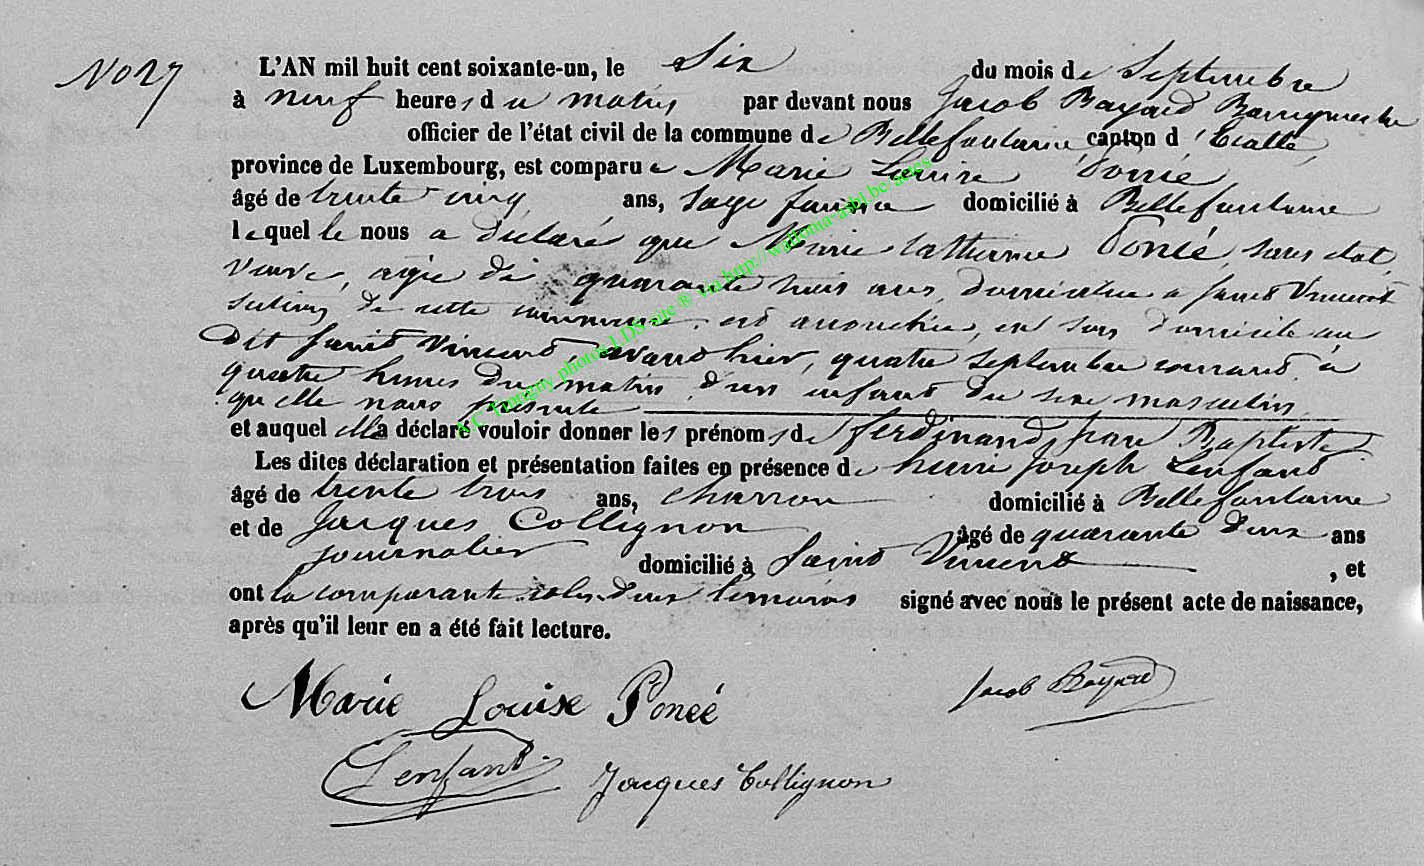 No 27
L'AN mil huit cent soixante-un, le Six du mois de Septembre
à neuf heures du matin par devant nous Jacob Bayard Bourgmestre
officier de l'état civil de la commune de Bellefontaine, canton d'Etalle,
province de Luxembourg, est comparue Marie Louise Poncé
âgé de trente cinq ans, sage femme domicilié à Bellefontaine
lequel le nous a déclaré que Marie Catherine Poncé, sans état,
veuve, agée de quarante trois ans, domiciliée a Saint Vincent
section de cette commune, est accouchée, en son domicile au
dit Saint Vincent, avant hier, quatre septembre courant, à
quatre heures du matin, d'un enfant du sexe masculin,
qu'elle nous présente
et auquel elle a déclaré vouloir donner les prénoms de ferdinand, jean Baptiste
Les dites déclaration et présentation faites en présence de henri Joseph Lenfant
âgé de trente trois ans, charron domicilié à Bellefontaine
et de Jacques Collignon âgé de quarante deux ans
journalier domicilié à Saint Vincent, et
ont la comparante et les deux témoins signé avec nous le présent acte de naissance,
après qu'il leur en a été fait lecture.
Marie Louise Poncé Jacob Bayard
Lenfant Jacques Collignon
A.C. Tintigny photos LDS site ® via http://wallonia-asbl.be/actes